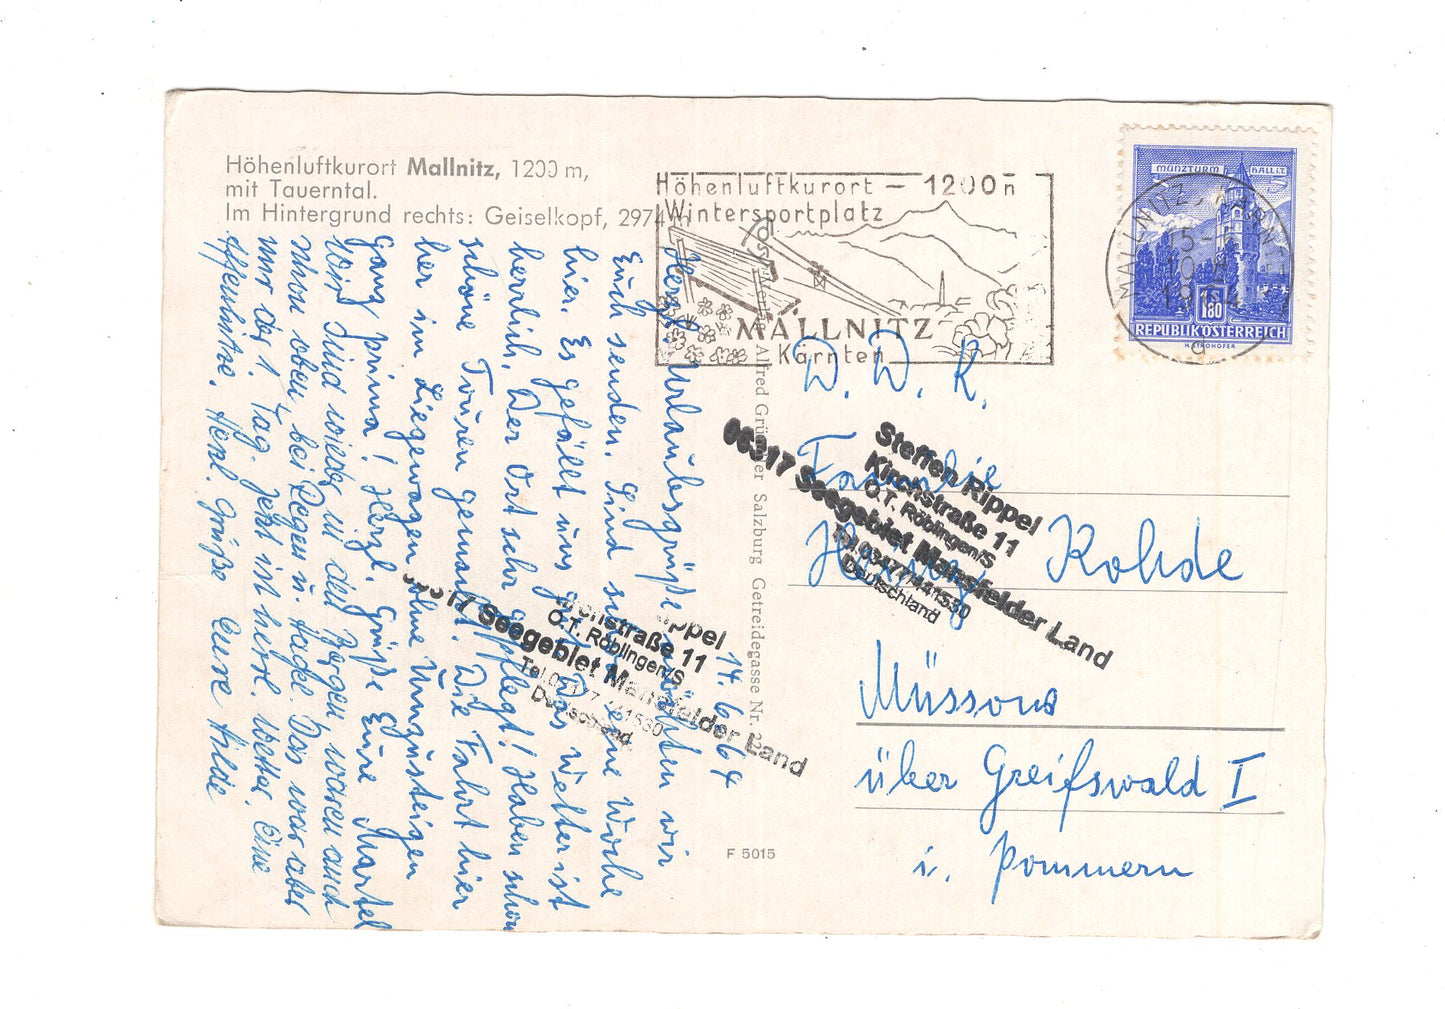 Höhenluftkurort Mallnitz, 1200 m,
mit Tauerntal.
Im Hintergrund rechts: Geiselkopf, 2974 m
Höhenluftkurort - 1200 m
Wintersportplatz
MALLNITZ
Kärnten
MÜNZTURM HALL i.T.
1.80
REPUBLIK ÖSTERREICH
MALLNITZ
15-
1964
a
14.6.64
Herzl. Urlaubsgrüße möchten wir
Euch senden. Sind schon eine Woche
hier. Es gefällt uns gut. Das Wetter ist
herrlich. Der Ort sehr gepflegt! Haben schon
schöne Touren gemacht. Die Fahrt hier
her im Liegewagen ohne Umzusteigen
ganz prima! Herzl. Grüße Eure Martel
Wir sind wieder in den Bergen waren auch
schon oben, bei Regen u. Hagel. Das war aber
nur der 1. Tag. Jetzt ist herrl. Wetter. Eine
Affenhitze. Herzl. Grüße Eure Hilde
Alfred Gründler Salzburg Getreidegasse Nr. 22
F 5015
D. D. R.
Familie
Kohde
Müssow
über Greifswald I
i. Pommern
Steffen Rippel
Kirchstraße 11
O.T. Röblingen/S
06317 Seegebiet Mansfelder Land
Tel.034774/41530
Deutschland
Rippel
Kirchstraße 11
O.T. Röblingen/S
06317 Seegebiet Mansfelder Land
Deutschland